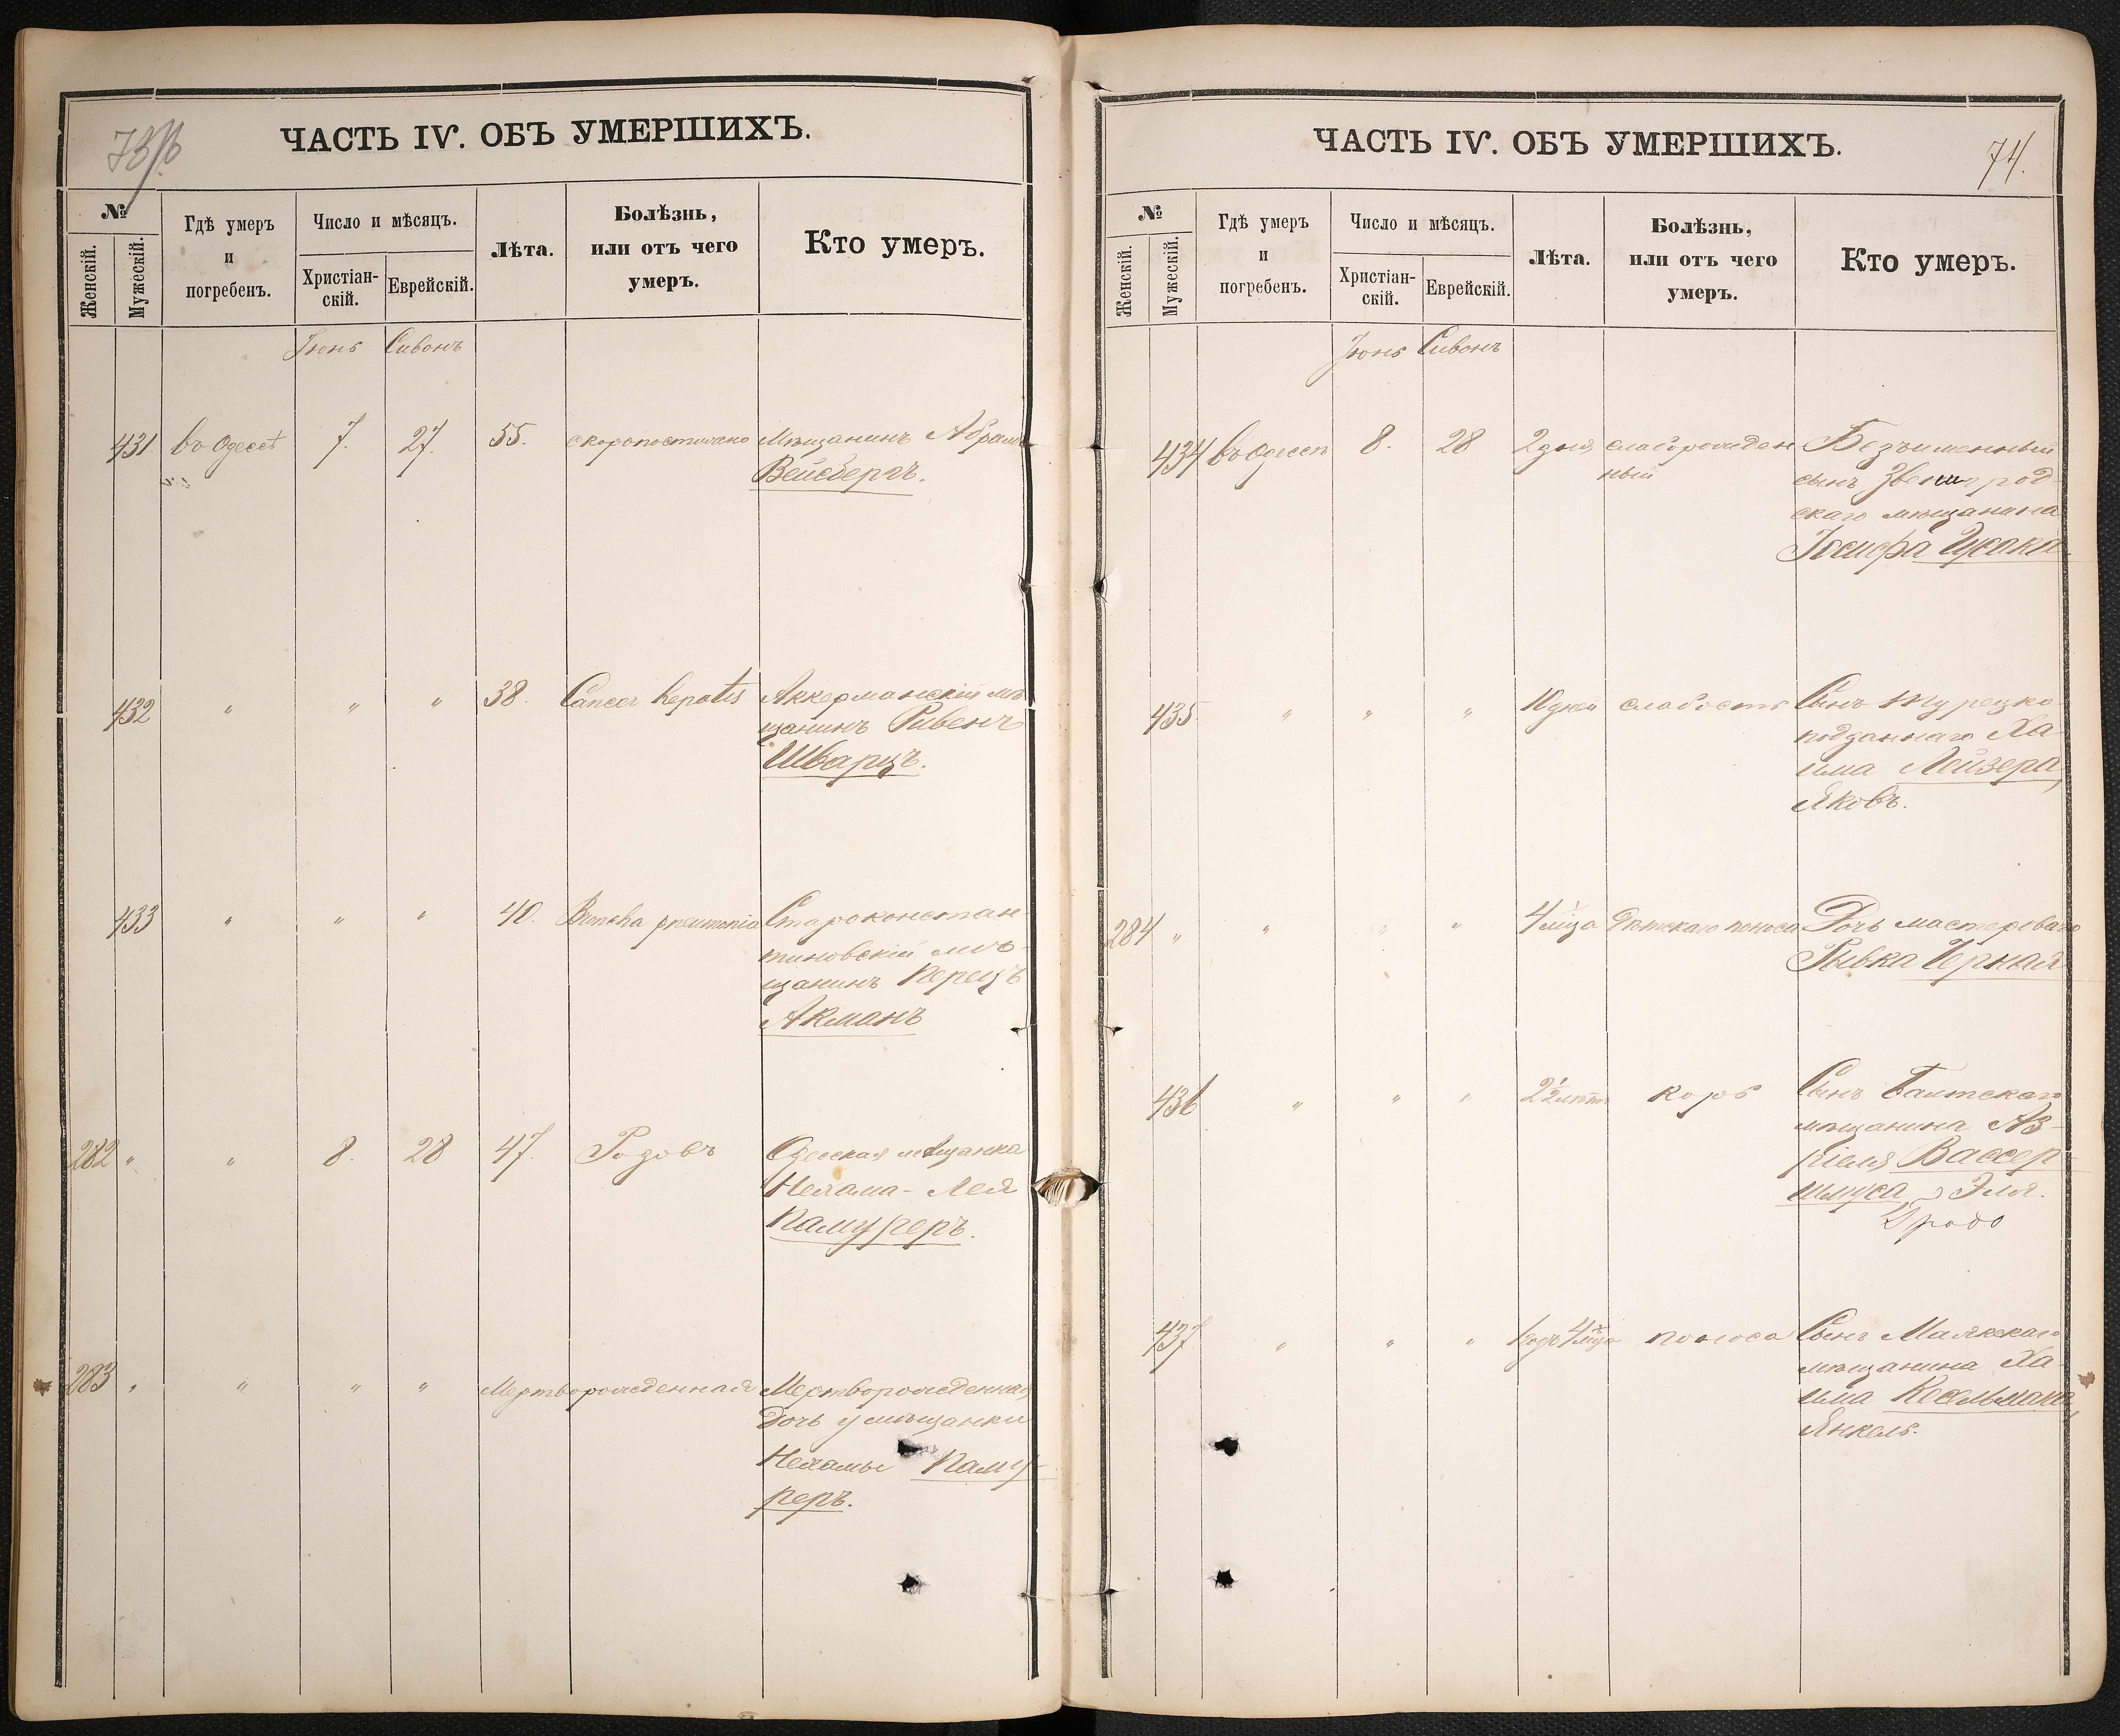 73/б
ЧАСТЬ IV. ОБЪ УМЕРШИХЪ.
№
Женскій.
Мужескій.
Гдѣ умеръ
и
погребенъ.
Число и мѣсяцъ.
Христіан-
скій.
Еврейскій.
Лѣта.
Болѣзнь,
или отъ чего
умеръ.
Кто умеръ.
Іюнь Сивонъ
431 въ Одессѣ 7. 27. 55. скоропостижно Мѣщанинъ Абрамъ
Вейсбергъ.
432 " " " 38. Cancer hepatis Аккерманскій мѣ
щанинъ Ривенъ
Шварцъ.
433 " " " 40. Broncha pneumonia Староконстан-
тиновскій мѣ-
щанинъ Перецъ
Акманъ
282 " " 8. 28 47. Родовъ Одесская мѣщанка
Нехама-Лея
Памуреръ.
283 " " " " Мертворожденная Мертворожденная
дочь у мѣщанки
Нехамы Паму-
реръ.
74.
ЧАСТЬ IV. ОБЪ УМЕРШИХЪ.
№
Женскій.
Мужескій.
Гдѣ умеръ
и
погребенъ.
Число и мѣсяцъ.
Христіан-
скій.
Еврейскій.
Лѣта.
Болѣзнь,
или отъ чего
умеръ.
Кто умеръ.
Іюнь Сивонъ
434 въ Одессѣ 8. 28 2 дня слаборожден Безъименный
ный сынъ Звенигород-
скаго мѣщанина
Іосифа
435 " " " 10 дней слабость Сынъ турецко-
подданнаго Ха-
има Лейзера,
Яковъ.
284 " " " " 4 мца Дѣтскаго поноса Дочь мастероваго
Рывка Черная
436 " " " 2½ лѣтъ корь Сынъ Балтскаго
мѣщанина Аз-
ріеля Вассер-
шлуса, Эля.
437 " " " 1 годъ 4 мца поноса Сынъ Маякскаго
мѣщанина Ха-
има Кесельмана,
Янкель.